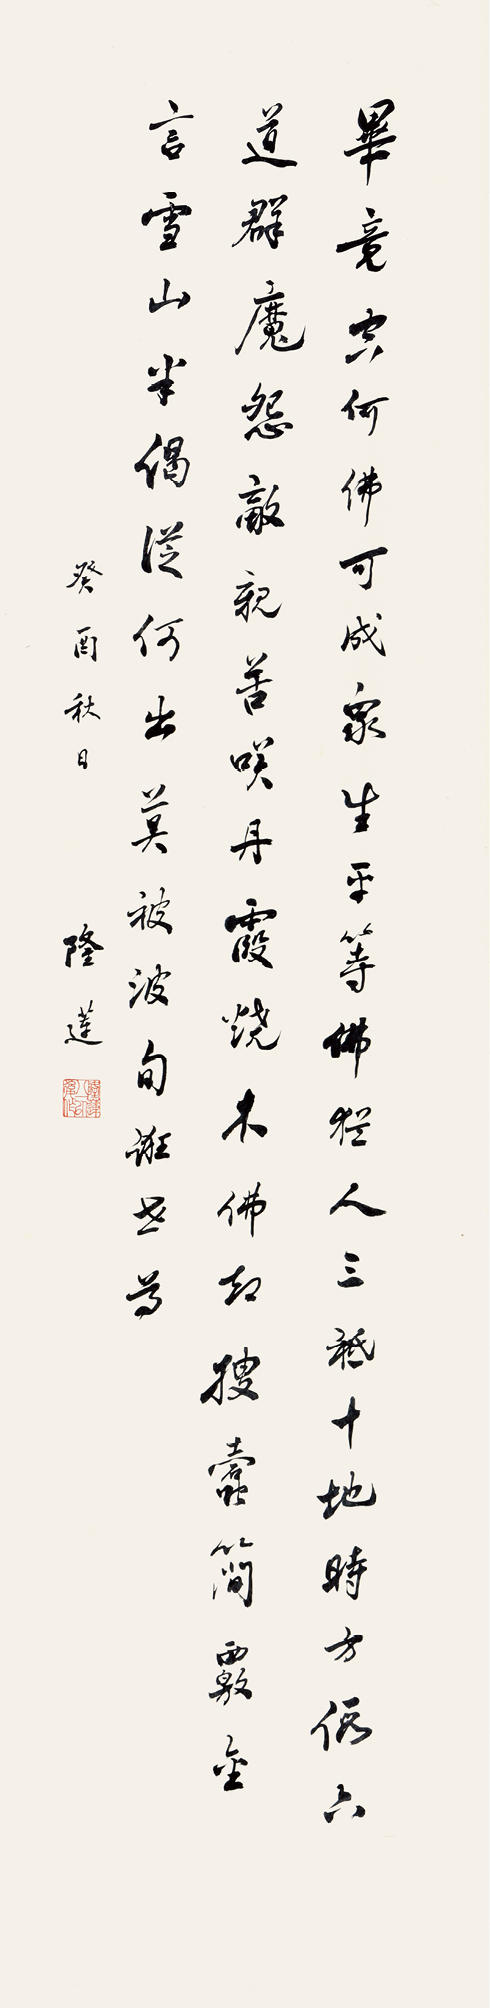 畢竟空何佛可成眾生平等佛猶人三祇十地時方假六
道群魔怨敵親苦咲丹霞燒木佛却搜蠹簡覈金
言雪山半偈從何出莫被波旬誑世尊
癸酉秋日
隆蓮